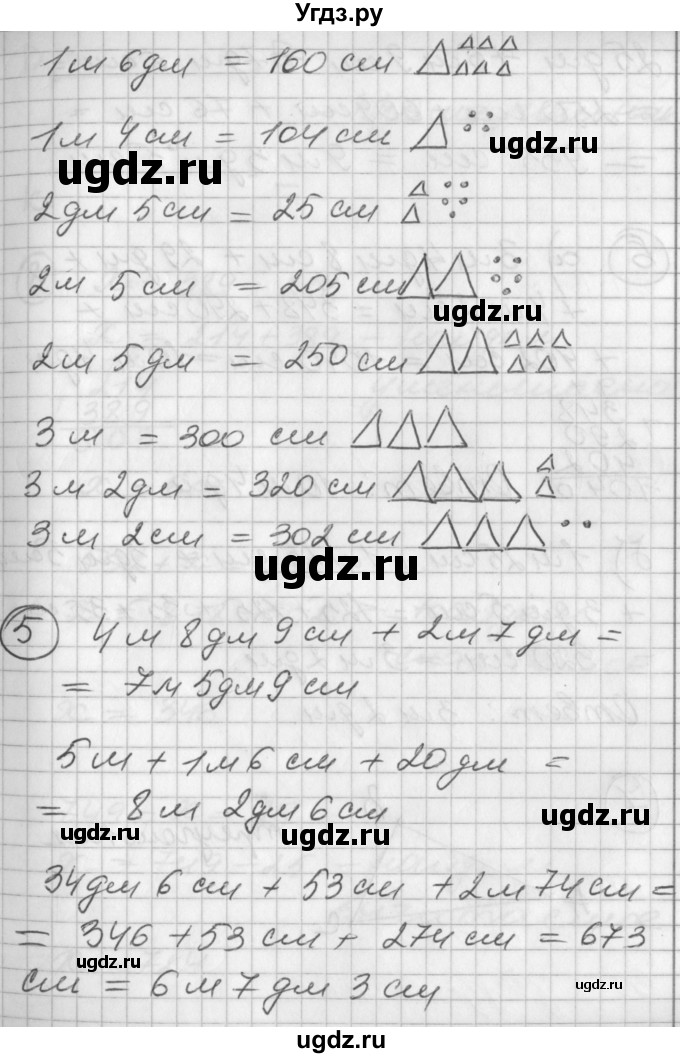 Угдз.ру
1 м 6 дм = 160 см
1 м 4 см = 104 см
ugdz.ru
ugdz.ru
2 дм 5 см = 25 см
2 м 5 см = 205 см
ugdz.ru
2 м 5 дм = 250 см
3 м = 300 см
3 м 2 дм = 320 см
3 м 2 см = 302 см
ugdz.ru
5 4 м 8 дм 9 см + 2 м 7 дм =
= 7 м 5 дм 9 см
5 м + 1 м 6 см + 20 дм =
= 8 м 2 дм 6 см
ugdz.ru ugdz.ru ugdz.ru
34 дм 6 см + 53 см + 2 м 74 см =
= 346 + 53 см + 274 см = 673
ugdz.ru
см = 6 м 7 дм 3 см
ugdz.ru